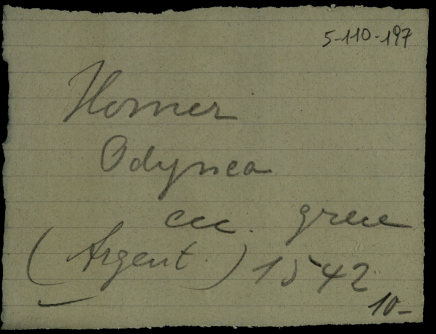 5-110-197
Homer
Odyssea
etc. grece
(Argent.) 1542
10-